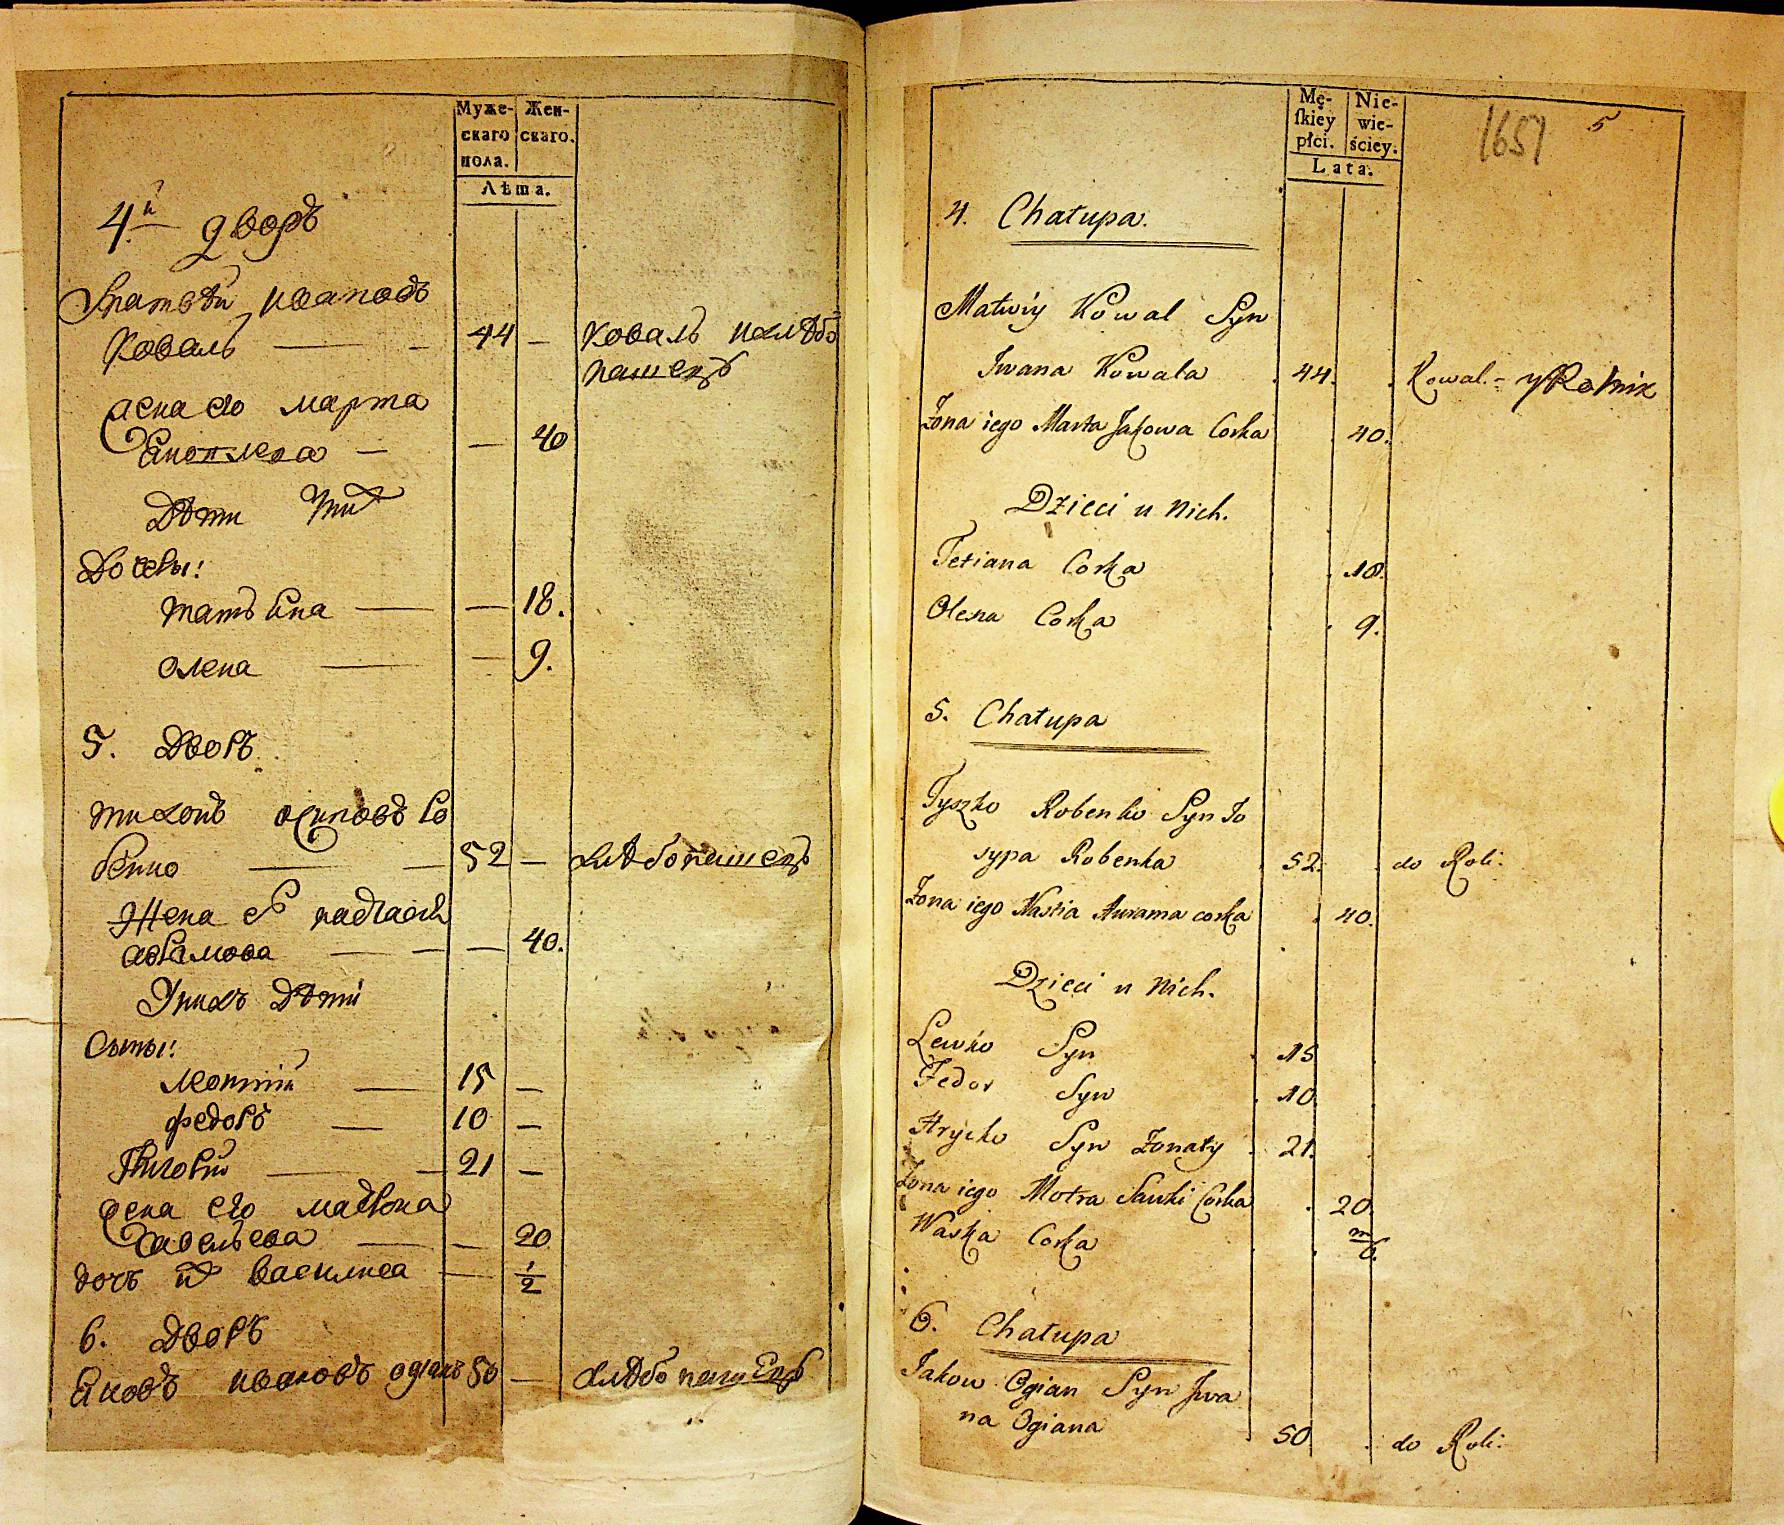 Муже-
скаго
пола.
Жен-
скаго.
Лѣта.
4й дворъ
Ивановъ
Коваль — 44 — Коваль и хлѣбо
пашецъ
жена его марта
— 40
Дѣти
Дочеры:
татьяна — — 18.
олена — — 9.
5. Дворъ
тихонъ осиповъ ро
бенко — 52 — хлѣбопашецъ
Жена ег настасія
аврамова — — 40.
У нихъ дѣти
Сыны:
леонтій — 15 —
федоръ — 10 —
Григорій — 21 —
жена его матрона
савельева — — 20
дочь их василиса — 1/2
6. Дворъ
Яковъ ивановъ огіянъ 50 — хлѣбопашецъ
Mę-
ſkiey
płci.
Nie-
wie-
ściey.
Lata.
1651 5
4. Chałupa.
Matwiy Kowal Syn
Iwana Kowala 44. Kowal - y Rolnik
Żona iego Marta Jakowa Corka 40.
Dzieci u Nich.
Tetiana Corka 18.
Olena Corka 9.
5. Chałupa
Tyszko Robenko Syn Jo
sypa Robenka 52. do Roli.
Żona iego Nastia Awrama corka 40.
Dzieci u Nich.
Lewko Syn 15
Fedor Syn 10
Hrycko Syn Żonaty 21.
Żona iego Motra Sawki Corka 20.
Waska Corka m/6.
6. Chałupa
Jakow Ogian Syn Jwa
na Ogiana 50 do Roli.